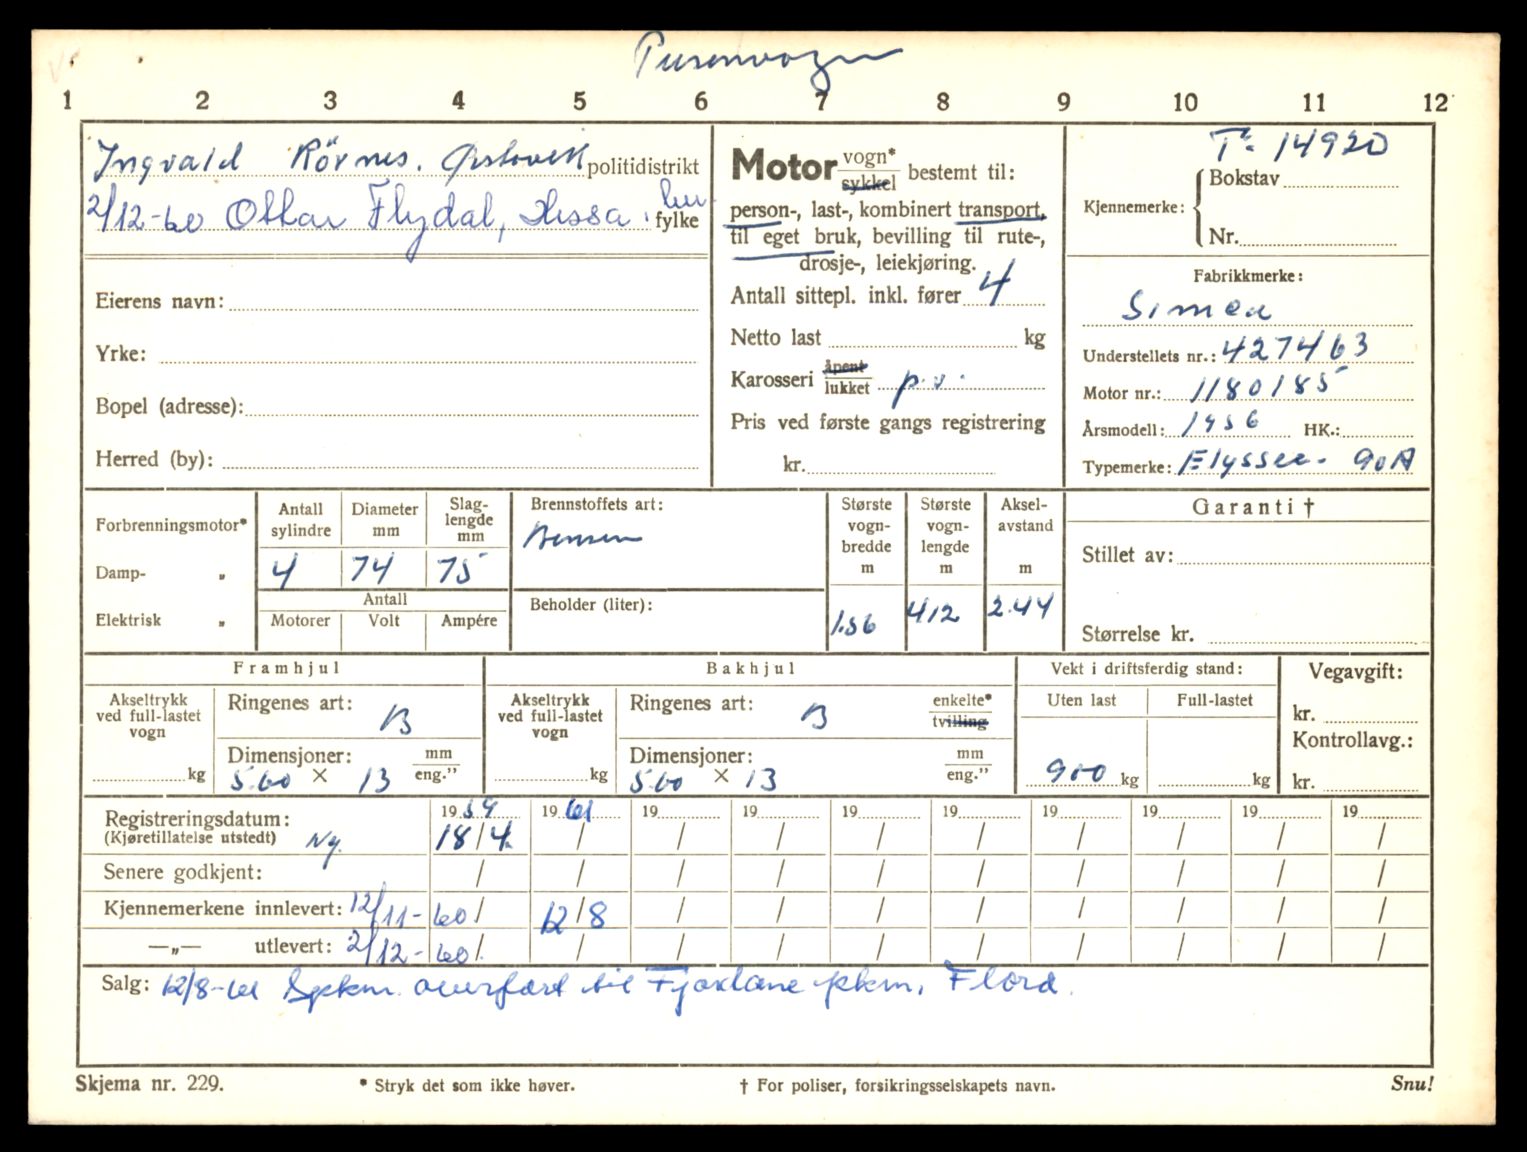 Personvogn
1 2 3 4 5 6 7 8 9 10 11 12
Ingvald Rövnes. Ørstavik politidistrikt
2/12-60 Ottar Flydal, Hessa. fylke
Eierens navn:
Yrke:
Bopel (adresse):
Herred (by):
Motor vogn* sykkel bestemt til:
person-, last-, kombinert transport,
til eget bruk, bevilling til rute-,
drosje-, leiekjøring.
Antall sittepl. inkl. fører 4
Netto last kg
Karosseri åpent lukket p.v.
Pris ved første gangs registrering
kr.
T- 14920
Kjennemerke: Bokstav
Nr.
Fabrikkmerke:
Simca
Understellets nr.: 427463
Motor nr.: 1180185
Årsmodell: 1956 HK.:
Typemerke: Elyssee. 90A
Forbrenningsmotor*
Damp- "
Elektrisk "
Antall sylindre
Diameter mm
Slag-lengde mm
4 74 75
Antall
Motorer Volt Ampére
Brennstoffets art:
Bensin
Beholder (liter):
Største vogn-bredde m
Største vogn-lengde m
Aksel-avstand m
1.56 412 2.44
Garanti †
Stillet av:
Størrelse kr.
Framhjul
Akseltrykk ved full-lastet vogn
kg
Ringenes art: B
Dimensjoner: mm eng."
5.60 × 13
Bakhjul
Akseltrykk ved full-lastet vogn
kg
Ringenes art: B enkelte* tvilling
Dimensjoner: mm eng."
5.60 × 13
Vekt i driftsferdig stand:
Uten last Full-lastet
900 kg kg
Vegavgift:
kr.
Kontrollavg.:
kr.
Registreringsdatum: 19 59 19 61 19 19 19 19 19 19 19 19
(Kjøretillatelse utstedt) Ny. 18/4. / / / / / / / / /
Senere godkjent: / / / / / / / / / /
Kjennemerkene innlevert: 12/11-60 / 12/8 / / / / / / / /
—„— utlevert: 2/12-60 / / / / / / / / / /
Salg: 12/8-61 overført til Fjordane pkm, Florø.
Skjema nr. 229.
* Stryk det som ikke høver.
† For poliser, forsikringsselskapets navn.
Snu!